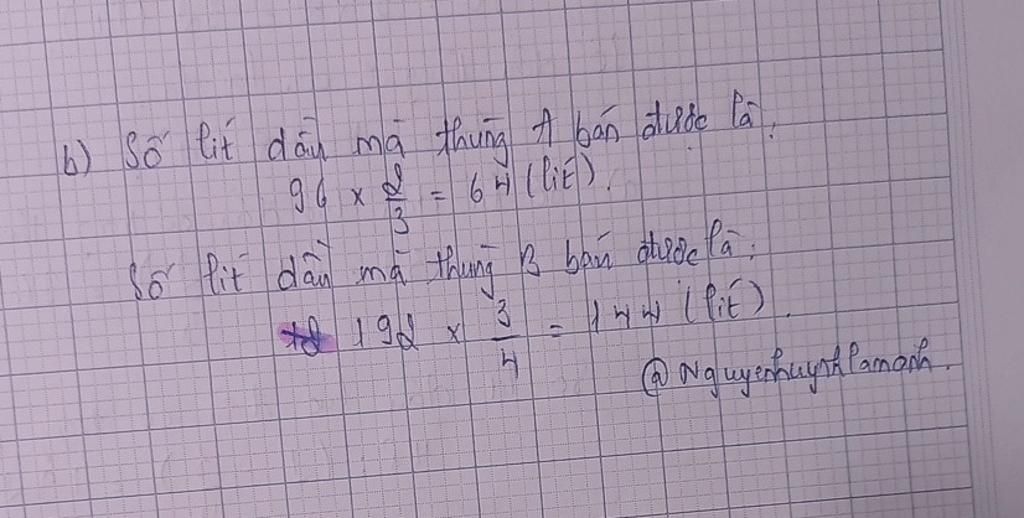 b) Số lít dầu mà thùng A bán được là:
96 x 2/3 = 64 (lít).
Số lít dầu mà thùng B bán được là:
192 x 3/4 = 144 (lít).
@Nguyenhuynhlamanh.